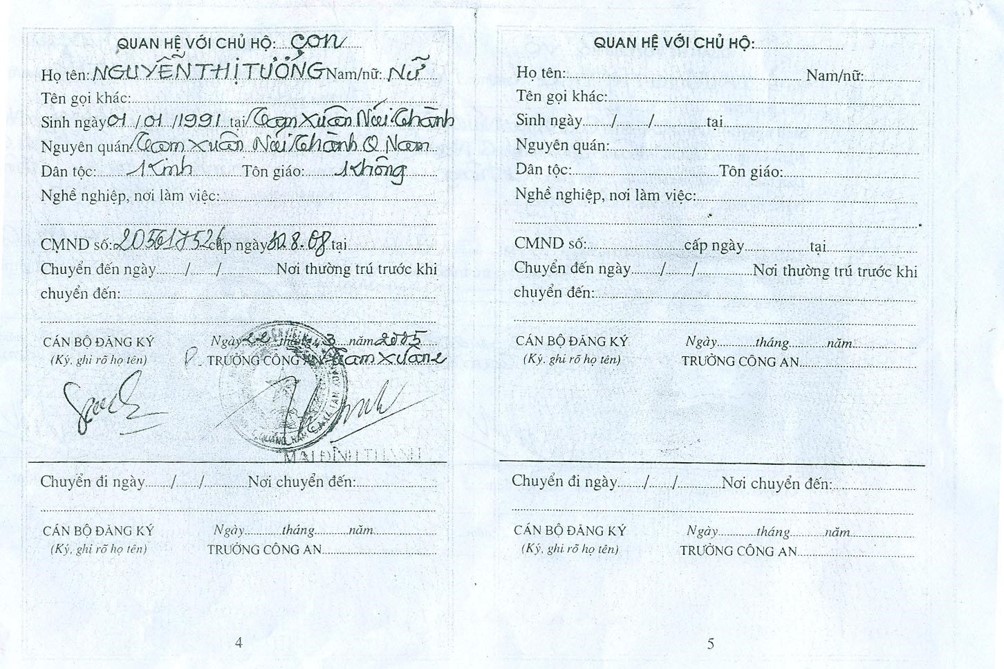 QUAN HỆ VỚI CHỦ HỘ: con
Họ tên: NGUYỄN THỊ TƯỜNG Nam/nữ: Nữ
Tên gọi khác:
Sinh ngày 01 / 01 / 1991 tại Tam Xuân Núi Thành
Nguyên quán: Tam Xuân Núi Thành Q Nam
Dân tộc: Kinh Tôn giáo: Không
Nghề nghiệp, nơi làm việc:
CMND số: cấp ngày tại
Chuyển đến ngày / / Nơi thường trú trước khi
chuyển đến:
CÁN BỘ ĐĂNG KÝ Ngày 22 tháng 3 năm 2005
(Ký, ghi rõ họ tên) P. TRƯỞNG CÔNG AN Tam Xuân 2
MAI ĐÌNH THANH
Chuyển đi ngày / / Nơi chuyển đến:
CÁN BỘ ĐĂNG KÝ Ngày tháng năm
(Ký, ghi rõ họ tên) TRƯỞNG CÔNG AN
4
QUAN HỆ VỚI CHỦ HỘ:
Họ tên: Nam/nữ:
Tên gọi khác:
Sinh ngày / / tại
Nguyên quán:
Dân tộc: Tôn giáo:
Nghề nghiệp, nơi làm việc:
CMND số: cấp ngày tại
Chuyển đến ngày / / Nơi thường trú trước khi
chuyển đến:
CÁN BỘ ĐĂNG KÝ Ngày tháng năm
(Ký, ghi rõ họ tên) TRƯỞNG CÔNG AN
Chuyển đi ngày / / Nơi chuyển đến:
CÁN BỘ ĐĂNG KÝ Ngày tháng năm
(Ký, ghi rõ họ tên) TRƯỞNG CÔNG AN
5